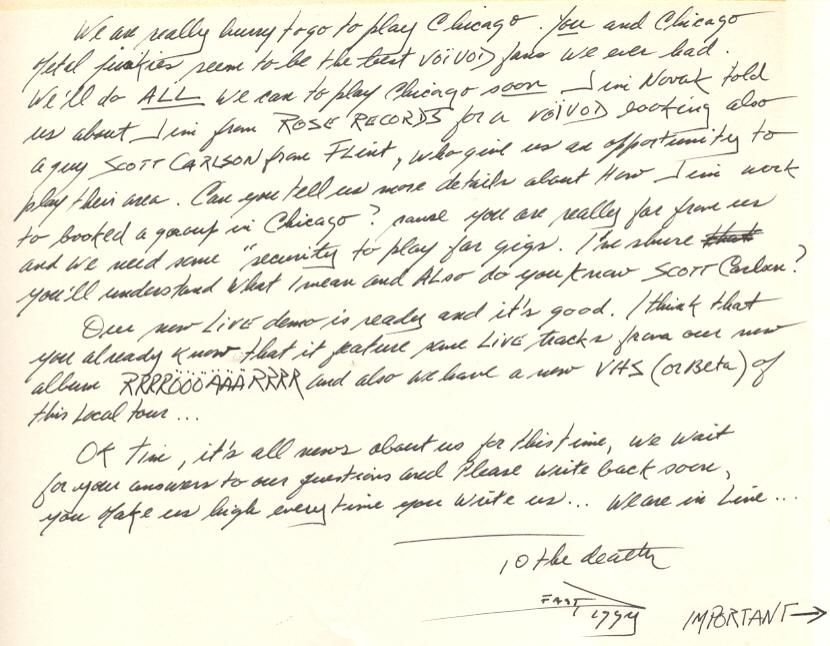 We are really hurry to go to play Chicago. You and Chicago
Metal junkies seem to be the best VOÏVOD fans we ever had.
We'll do ALL we can to play Chicago soon Jim Novak told
us about Jim from ROSE RECORDS for a VOÏVOD booking also
a guy SCOTT CARLSON from FLINT, who give us an opportunity to
play their area. Can you tell us more details about How Jim work
to booked a group in Chicago? cause you are really far from us
and we need some "security to play far gigs. I'm shure that
you'll understand what I mean and ALSO do you know SCOTT Carlson?
Our new LIVE demo is ready and it's good. I think that
you already know that it feature some LIVE tracks from our new
album RRRRÖÖÖAÄÄRRRR and also we have a new VHS (or Beta) of
this local tour...
OK Tim, it's all news about us for this time, we wait
for your answers to our questions and Please write back soon,
you make us high everytime you write us... We are in Line...
To the death
FAST iggy
IMPORTANT→